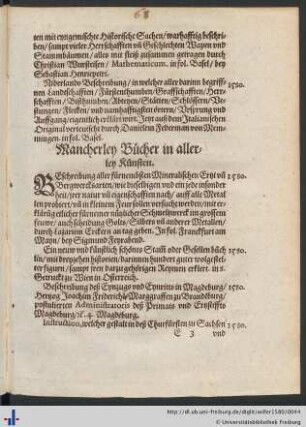 68
ten mit eyngemischte Historische Sachen/ warhafftig beschrie-
ben/ sampt vieler Herrschafften vñ Geschlechten Wapen vnd
Stammbäumen/ alles mit fleiß zusammen getragen durch
Christian Wursteisen/ Mathematicum. in fol. Basel/ bey
Sebastian Henricpetri.
Niderlands Beschreibung/ in welcher aller darinn begriffe- 1580.
nen Landschafften/ Fürstenthumben/ Graffschafften/ Herr-
schafften/ Bisthumben/ Abteyen/ Stätten/ Schlössern/ Ve-
stungen/ Flecken/ vnd namhafftigsten örtern/ Vrsprung vnd
Auffgang/ eigentlich erklärt wirt. Jetzt auß dem Italianischen
Original verteutscht durch Danielem Federman von Mem-
mingen. in fol. Basel.
Mancherley Bücher in aller-
ley Künsten.
BEschreibung aller fürnemisten Mineralischen Ertzt vñ 1580.
Bergwercksarten/ wie dieselbigen vnd ein jede insonder
heit/ jrer natur vñ eigenschafften nach/ auff alle Metal
len probiert/ vñ im kleinen Feur sollen versucht werden/ mit er-
klärũg etlicher fürnemer nützlicher Schmeltzwerck im grossem
feuwr/ auch scheidung Golts/ Silbers vñ anderer Metallen/
durch Lazarum Erckern an tag geben. In fol. Franckfurt am
Mayn/ bey Sigmund Feyrabend.
Ein neuw vnd künstlich schönes Stam̃ oder Gesellen büch 1580.
lin/ mit dreyzehen historien/ darinnen hundert guter wolgestel-
leter figurn/ sampt jren darzugehörigen Reymen erklert. in 8.
Getruckt zu Wien in Osterreich.
Beschreibung deß Eynzugs vnd Eynritts in Magdeburg/ 1580.
Hertzog Joachim Friderichs Marggraffen zu Brandẽburg/
postulierten Administratoris deß Primats vnd Ertzstiffts
Magdeburg/ etc. 4. Magdeburg.
Instruction, welcher gestalt in deß Churfürsten zu Sachsen 1580.
E 3 vnd
http://dl.ub.uni-freiburg.de/diglit/willer1580/0044
© Universitätsbibliothek Freiburg